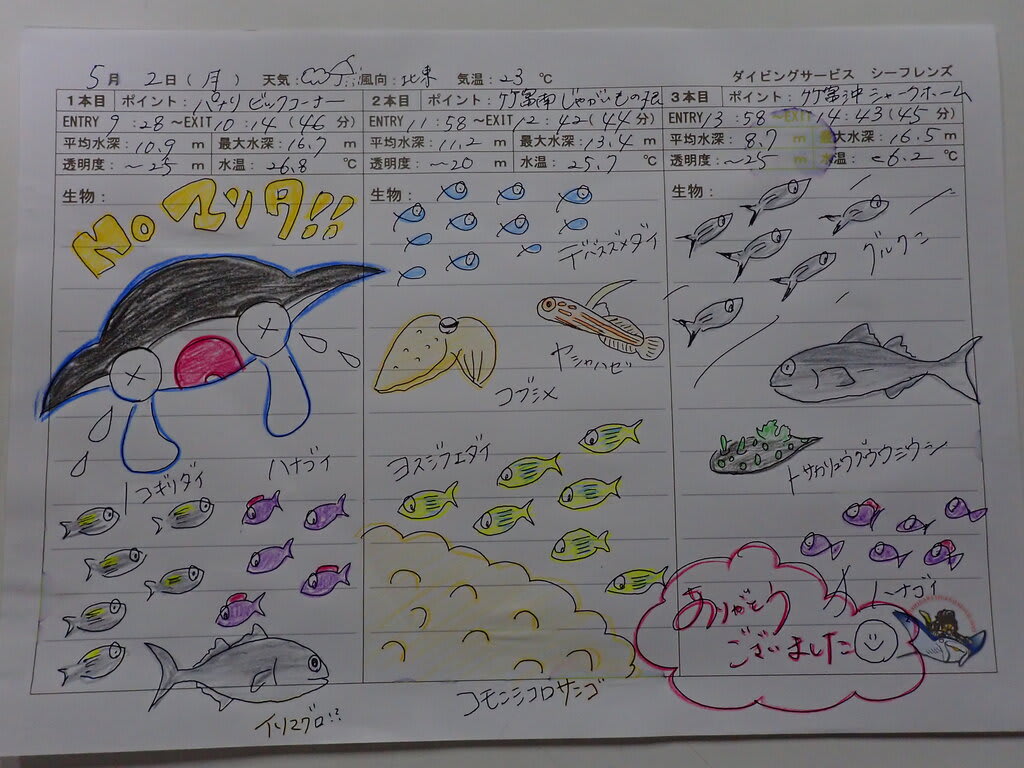 5月 2日(月) 天気: 風向:北東 気温:23℃
ダイビングサービス シーフレンズ
1本目 ポイント:パナリ ビックコーナー
ENTRY 9:28~EXIT 10:14(46分)
平均水深:10.9 m 最大水深:16.7 m
透明度:~25 m 水温:26.8 ℃
生物:
No マンタ!!
ノコギリダイ
ハナゴイ
イソマグロ!?
2本目 ポイント:竹富南 じゃがいもの根
ENTRY 11:58~EXIT 12:42(44分)
平均水深:11.2 m 最大水深:13.4 m
透明度:~20 m 水温:25.7 ℃
生物:
デバスズメダイ
ヤシャハゼ
コブシメ
ヨスジフエダイ
コモンシコロサンゴ
3本目 ポイント:竹富沖 シャークホーム
ENTRY 13:58~EXIT 14:43(45分)
平均水深:8.7 m 最大水深:16.5 m
透明度:~25 m 水温: 6.2 ℃
生物:
グルクン
トサカリュウグウウミウシ
ハナゴイ
ありがとう
ございました